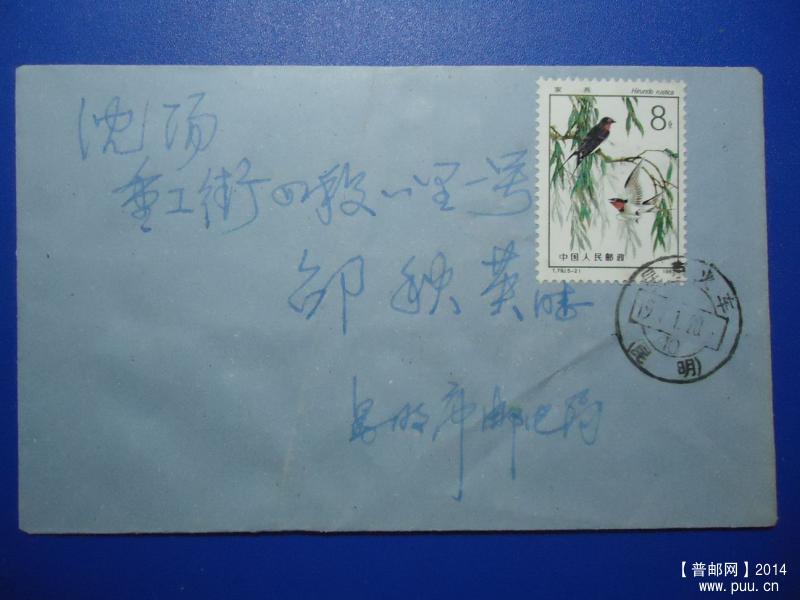 家 燕 Hirundo rustica
8分
中国人民邮政
T.79.(5-2) 198
沈阳
重工街四段八里一号
邵秋英收
昆明市邮电局
火车
19 1.20
10
(昆明)
【普邮网】2014
www.puu.cn